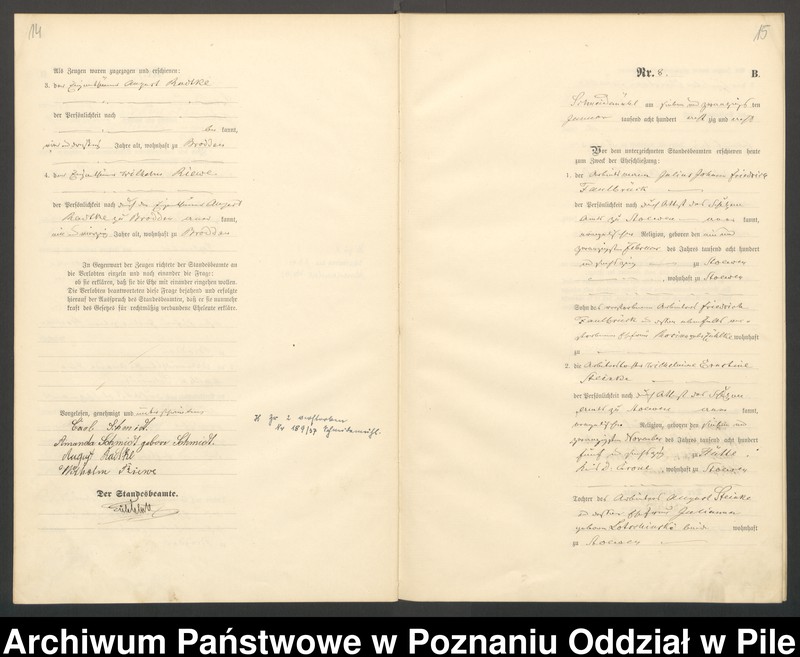 14
Als Zeugen waren zugezogen und erschienen:
3. der Eigenthümer August Radtke
der Persönlichkeit nach
kannt,
Jahre alt, wohnhaft zu Brodden
4. der Eigenthümer Wilhelm Riewe
der Persönlichkeit nach durch den Eigenthümer August
Radtke zu Brodden aner kannt,
Jahre alt, wohnhaft zu Brodden
In Gegenwart der Zeugen richtete der Standesbeamte an
die Verlobten einzeln und nach einander die Frage:
ob sie erklären, daß sie die Ehe mit einander eingehen wollen.
Die Verlobten beantworteten diese Frage bejahend und erfolgte
hierauf der Ausspruch des Standesbeamten, daß er sie nunmehr
kraft des Gesetzes für rechtmäßig verbundene Eheleute erkläre.
Vorgelesen, genehmigt und unterschrieben
Carl Schmidt
Amanda Schmidt geborne Schmidt.
August Radtke
Wilhelm Riewe
Der Standesbeamte.
zu 2 verstorben
Nr 189/37 Schneidemühl.
15
Nr. 8. B.
Schneidemühl am sieben und zwanzigsten
Januar tausend acht hundert acht zig und acht
Vor dem unterzeichneten Standesbeamten erschienen heute
zum Zweck der Eheschließung:
1. der Arbeitsmann Julius Johann Friedrich
Faulbrück
der Persönlichkeit nach durch Attest des Schulzen
Amts zu Stoewen aner kannt,
evangelischer Religion, geboren den
zwanzigsten Februar des Jahres tausend acht hundert
und sechszig zu Stoewen
, wohnhaft zu Stoewen
Sohn des verstorbenen Arbeiters Friedrich
Faulbrück und dessen ebenfalls ver-
storbenen Ehefrau wohnhaft
zu
2. die Wilhelmine Ernstine
Steinke
der Persönlichkeit nach durch Attest des Schulzen
Amts zu Stoewen aner kannt,
evangelischer Religion, geboren den
zwanzigsten November des Jahres tausend acht hundert
fünf und sechszig zu
Krone, wohnhaft zu Stoewen
Tochter des Arbeiters August Steinke
und dessen Ehefrau Julianna
geborne beide wohnhaft
zu Stoewen
Archiwum Państwowe w Poznaniu Oddział w Pile